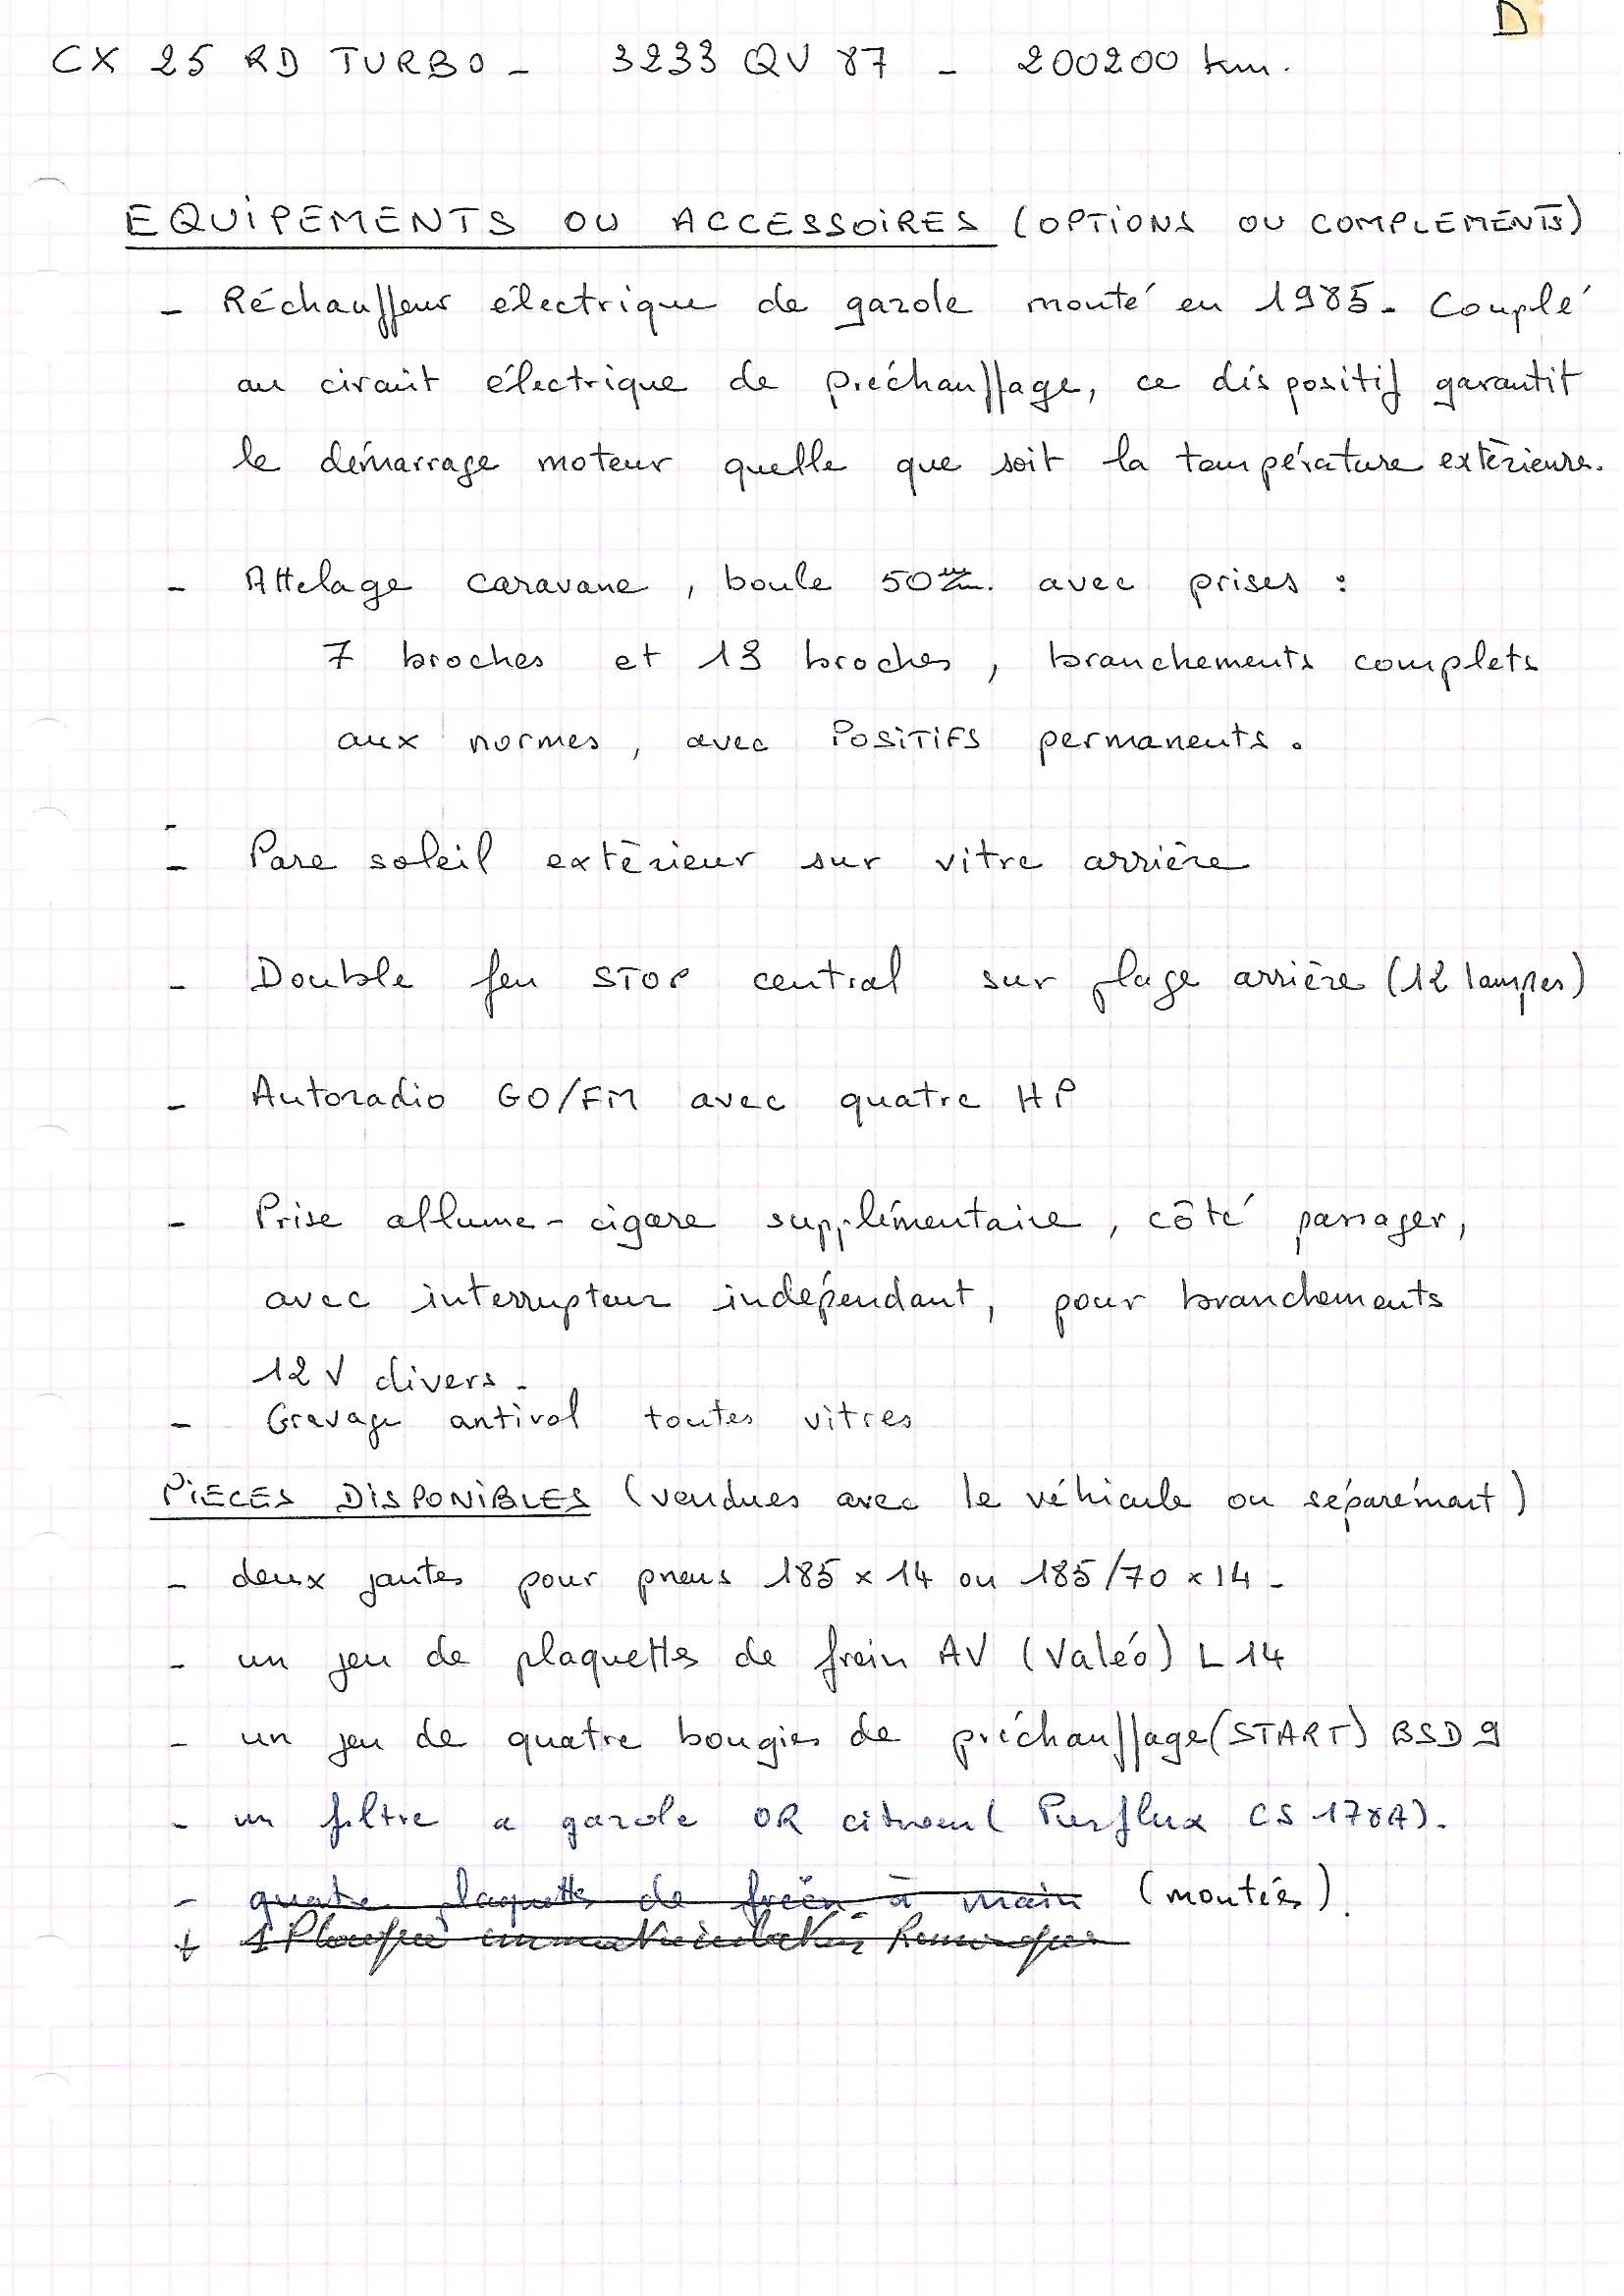 D
CX 25 RD TURBO - 3233 QV 87 - 200200 km.
EQUIPEMENTS OU ACCESSOIRES (OPTIONS OU COMPLEMENTS)
- Réchauffeur électrique de gazole monté en 1985. Couplé
au circuit électrique de préchauffage, ce dispositif garantit
le démarrage moteur quelle que soit la température extérieure.
- Attelage caravane, boule 50 mm. avec prises :
7 broches et 13 broches, branchements complets
aux normes, avec POSITIFS permanents.
-
- Pare soleil extérieur sur vitre arrière
- Double feu STOP central sur plage arrière (12 lampes)
- Autoradio GO/FM avec quatre HP
- Prise allume-cigare supplémentaire, côté passager,
avec interrupteur indépendant, pour branchements
12 V divers.
- Gravage antivol toutes vitres
PIECES DISPONIBLES (vendues avec le véhicule ou séparément)
- deux jantes pour pneus 185 x 14 ou 185/70 x 14 -
- un jeu de plaquettes de frein AV (Valéo) L 14
- un jeu de quatre bougies de préchauffage (START) BSD 9
- un filtre a gazole OR citroen (Purflux CS 178A).
- quatre plaquettes de frein à main (montées).
+ 1 Plaque immatriculation Remorque